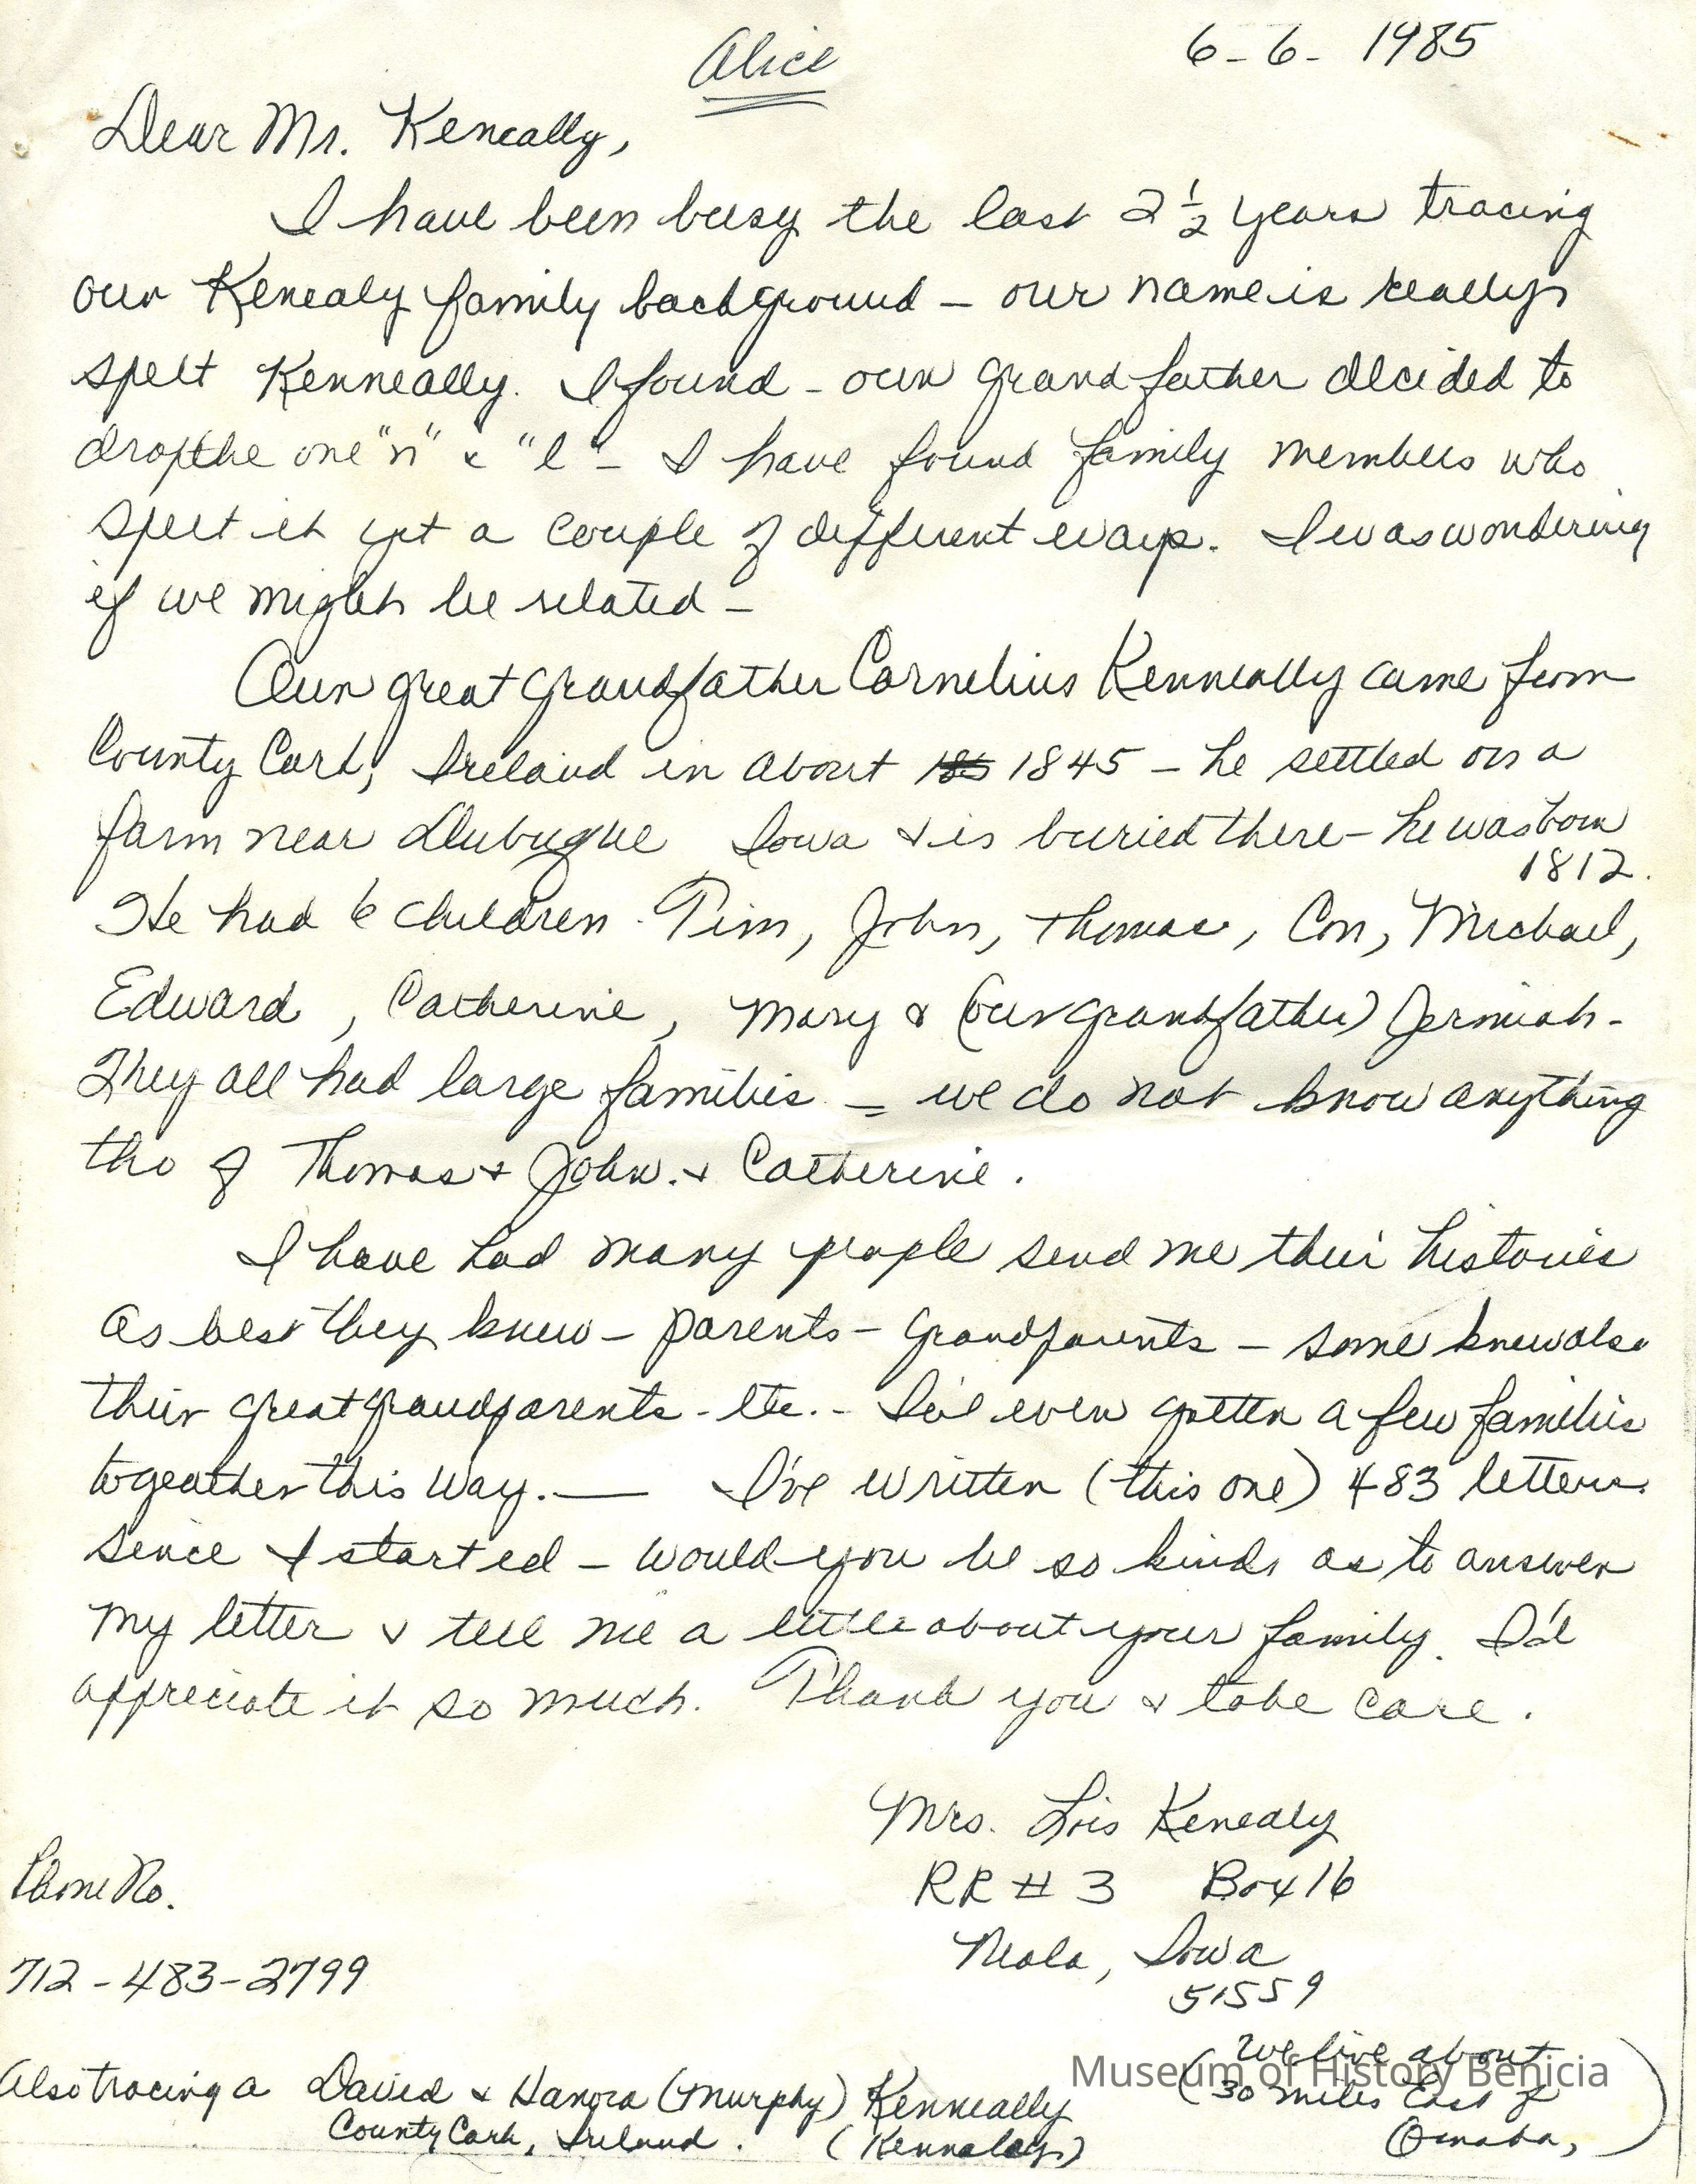 Alice
6-6-1985
Dear Mr. Keneally,
I have been busy the last 2 1/2 years tracing
our Kenealy family background – our name is really
spelt Kenneally. I found – our grandfather decided to
drop the one "n" & "l" – I have found family members who
spelt it yet a couple of different ways. I was wondering
if we might be related –
Our great grandfather Cornelius Kenneally came from
County Cork, Ireland in about 185 1845 – he settled on a
farm near Dubuque Iowa & is buried there – he was born
1812.
He had 6 children. Tim, John, Thomas, Con, Michael,
Edward, Catherine, Mary & (our grandfather) Jermiah –
They all had large families – we do not know anything
tho of Thomas & John. & Catherine.
I have had many people send me their histories
as best they knew – parents – grandparents – some knew also
their great grandparents – etc. – I've even gotten a few families
togeather this way. — I've written (this one) 483 letters
since I started – would you be so kind as to answer
my letter & tell me a little about your family. I'd
appreciate it so much. Thank you & take care.
Mrs. Lois Kenealy
RR # 3 Box 16
Neola, Iowa
51559
(We live about
30 miles East of
Omaha,)
Phone No.
712-483-2799
Also tracing a David & Hanora (Murphy) Kenneally
County Cork, Ireland. (Kennaley)
Museum of History Benicia